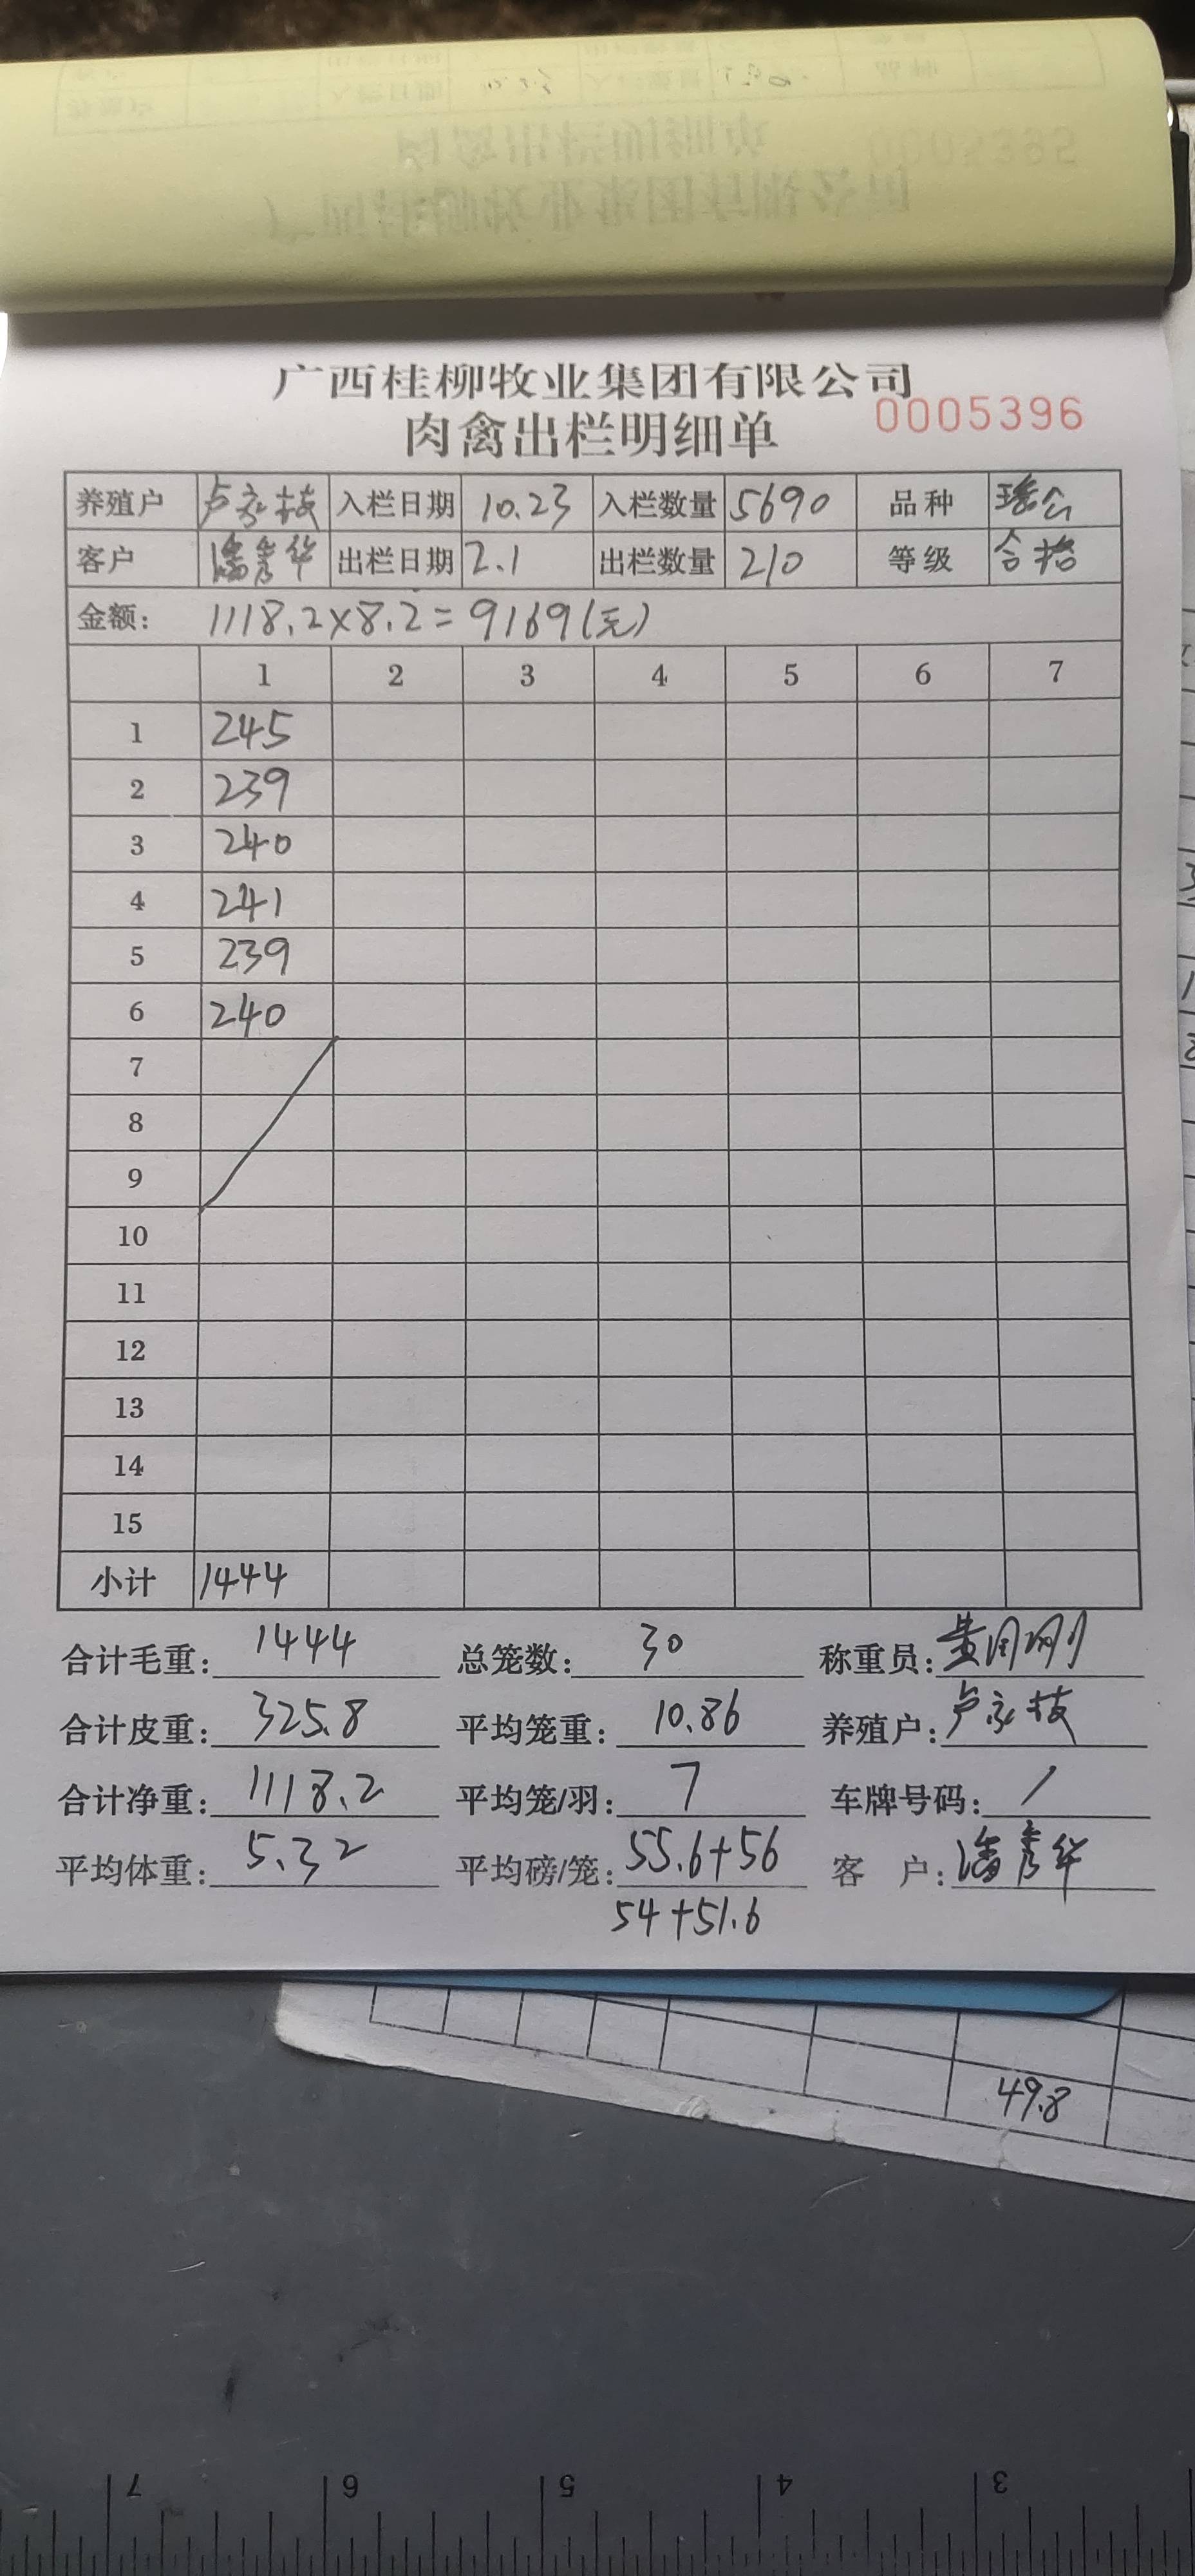 广西桂柳牧业集团有限公司
肉禽出栏明细单 0005396
养殖户 卢永枝 入栏日期 10.23 入栏数量 5690 品种 瑶公
客户 潘彦华 出栏日期 2.1 出栏数量 210 等级 合格
金额: 1118.2×8.2=9169(元)
1 2 3 4 5 6 7
1 245
2 239
3 240
4 241
5 239
6 240
7
8
9
10
11
12
13
14
15
小计 1444
合计毛重: 1444 总笼数: 30 称重员: 黄国刚
合计皮重: 325.8 平均笼重: 10.86 养殖户: 卢永枝
合计净重: 1118.2 平均笼/羽: 7 车牌号码: /
平均体重: 5.32 平均磅/笼: 55.6+56 客户: 潘彦华
54+51.6
49.8
7 6 5 4 3